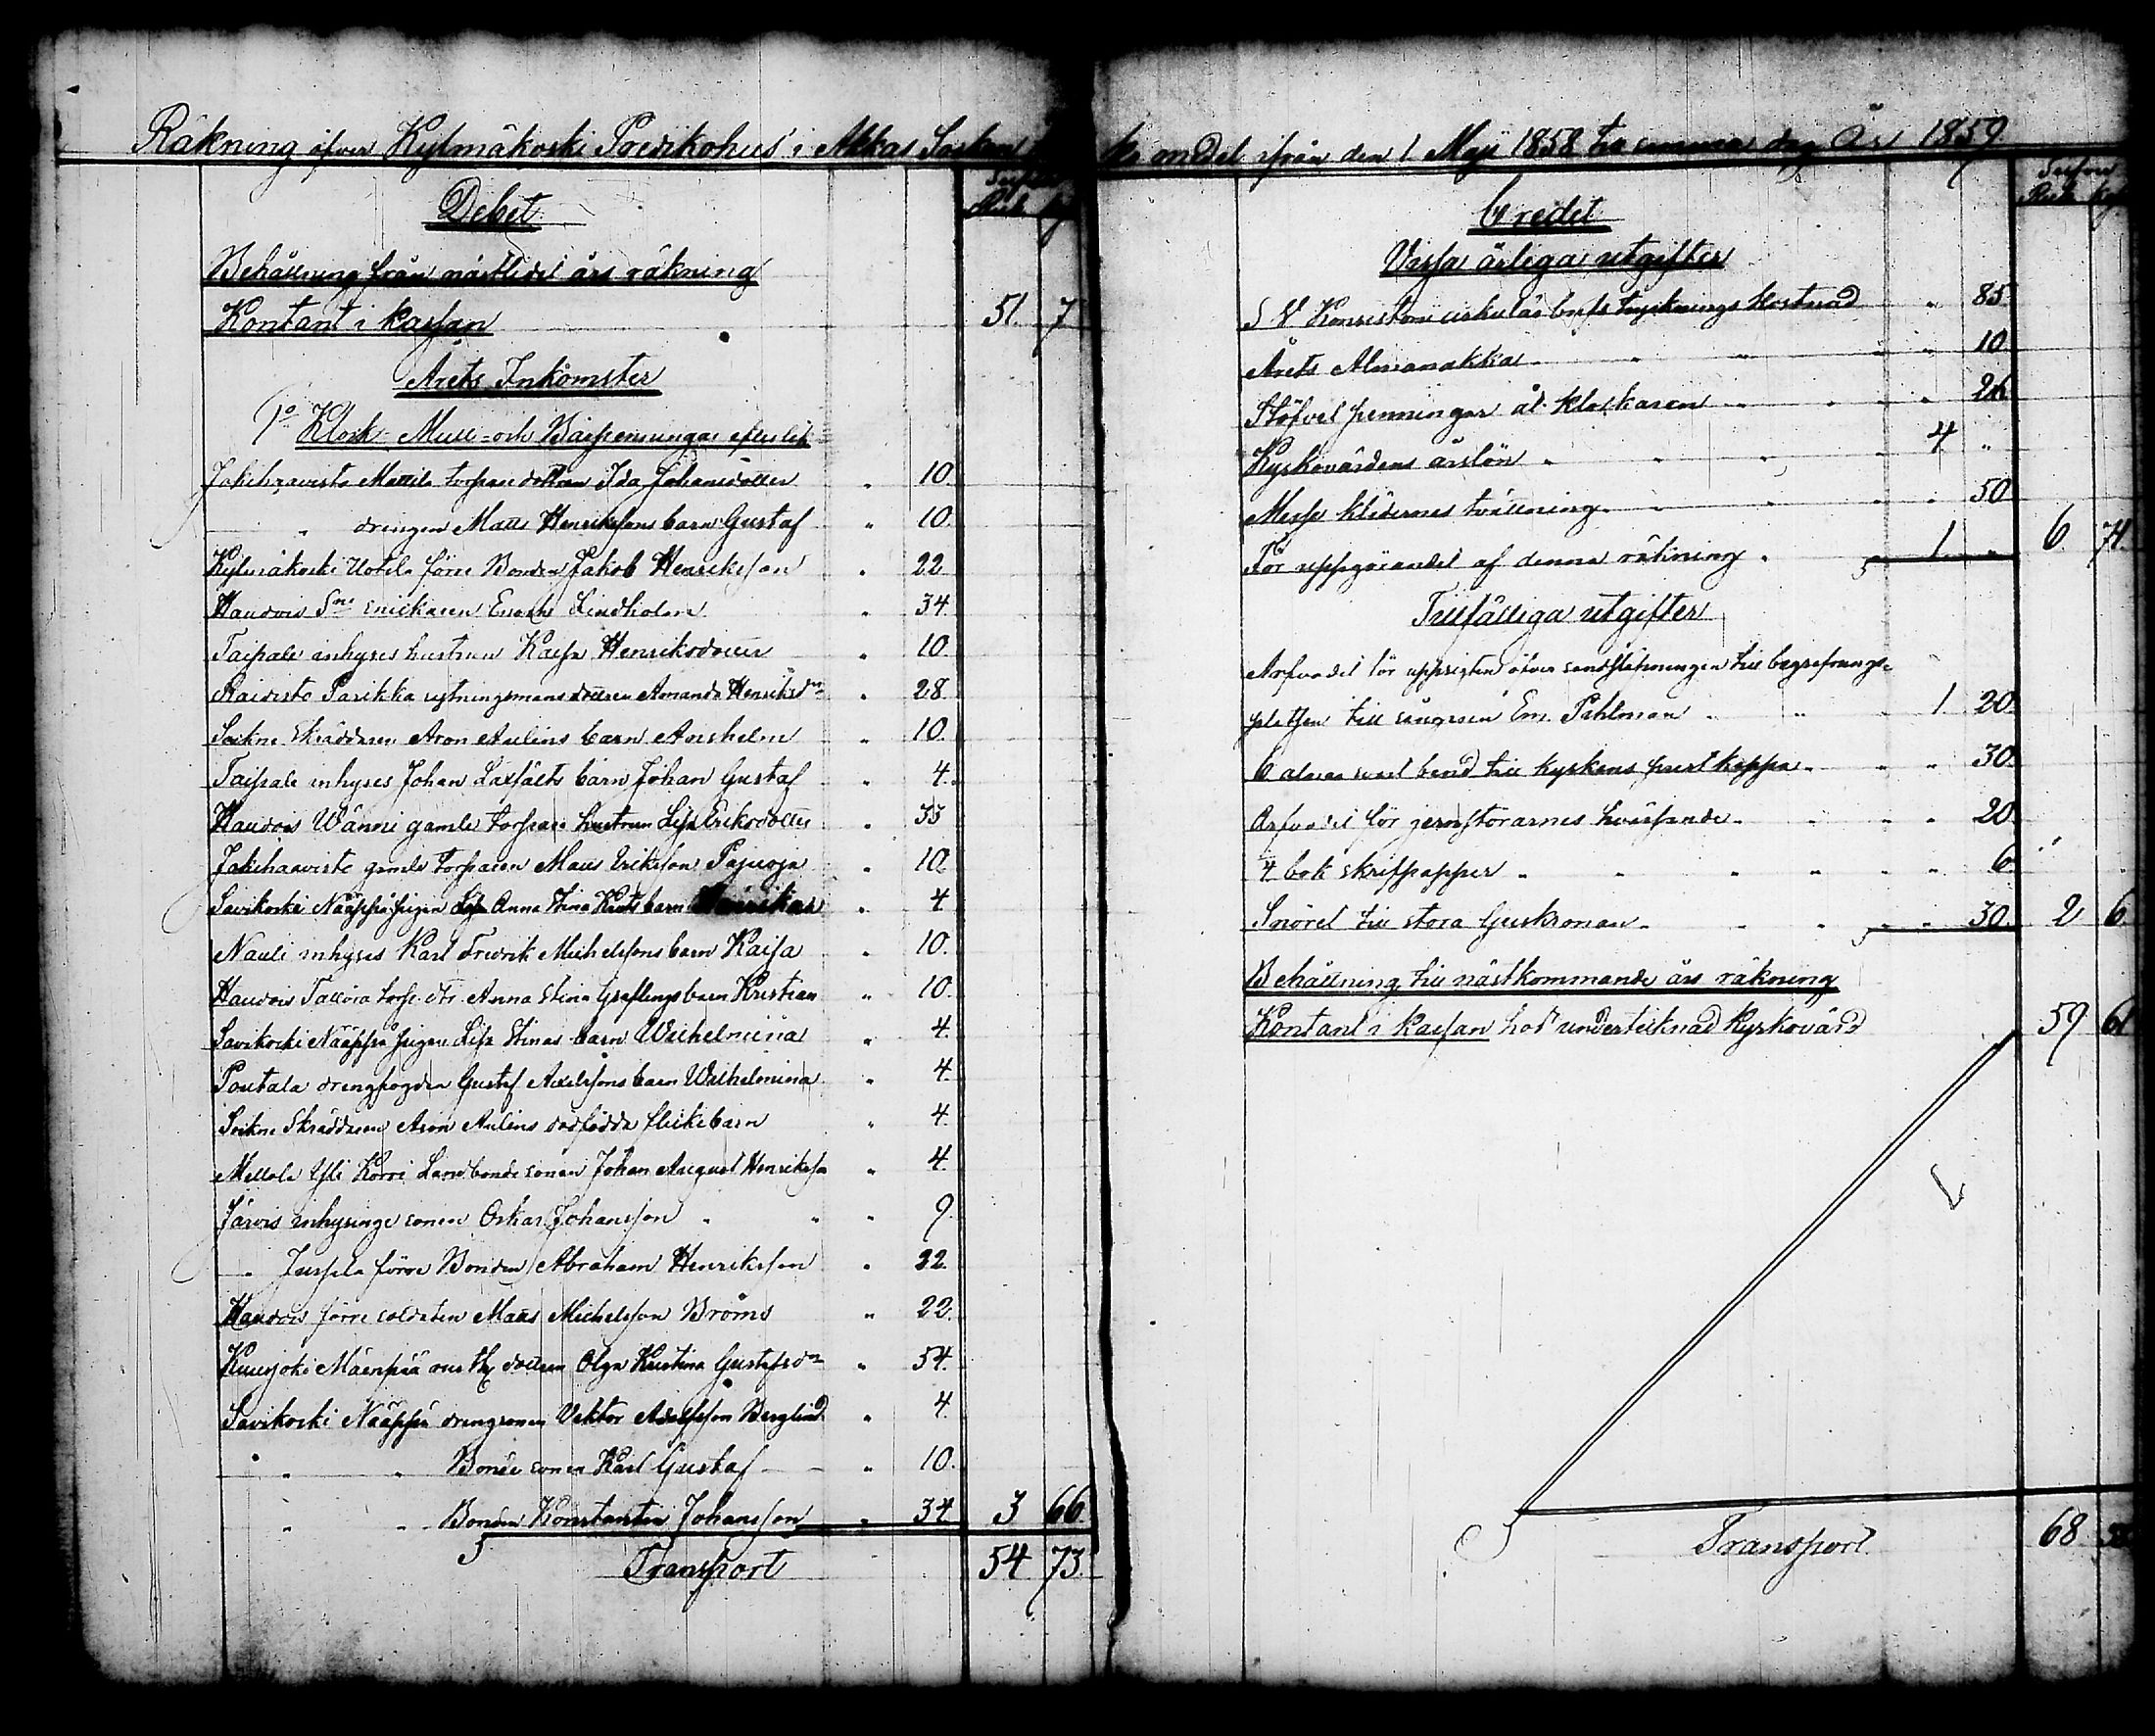 Räkning öfver Kylmäkoski Predikohus i Akkas Socken
omdel ifrån den 1 Maji 1858 till samma dag År 1859
Debet
Behållning från nästlidet års räkning
Kontant i kassan 51. 7
Årets Inkomster
1o Klock- Mull- och Bårpenningar efter lik
Jokihaavisto Mattila torpare dottren Ida Johansdotter " 10.
" drengen Matts Henrikssons barn Gustaf " 10.
Kylmäkoski Uotila förre Bonden Jakob Henriksson " 22
Haudois Sne snickaren Enoch Lindholm " 34.
Taipale inhyses hustrun Kaisa Henriksdotter " 10.
Raivisto Parikka rytningsmans dottren Amanda Henriksdr " 28.
Sockne Skräddaren Aron Aulins barn Anshelm " 10.
Taipale inhyses Johan Laxfälts barn Johan Gustaf " 4.
Haudois Wänni gamle torpare hustrun Lisa Eriksdotter " 33
Jokihaavisto gamle torparen Matts Eriksson Pajuoja " 10.
Savikoski Nääppä pigan Anna Stina barn " 4
Nauli inhyses Karl Fredrik Michelssons barn Kaisa " 10.
Haudois torp. dtr. Anna Stina Greflings barn Kristian " 10.
Savikoski Nääppä pigan Lisa Stinas barn Wilhelmina " 4.
Pontala drengfogden Gustaf Axelssons barn Wilhelmina " 4.
Sockne Skräddaren Aron Aulins dödfödda flickebarn " 4.
Mellola Yli Korri Landbonde sonen Johan August Henriksson " 4.
Järvis inhysinge sonen Oskar Johansson " " " 9.
" Jussila förre Bonden Abraham Henriksson " 22
Haudois förre soldaten Matts Michelsson Broms " 22.
Kuusjoki Mäenpää dottren Olga Kristina Gustafsdr " 54.
Savikoski Nääppä drengsonen Viktor Adolfsson Berglind " 4.
" " Bonde sonen Karl Gustaf " 10.
" " Bonden Konstantin Johansson " 34 3 66
Transport 54 73.
Credit
Vissa årliga utgifter
S V Konsistorii cirkulär brefs tryckningskostnad " 85.
Årets Almanakka " " " " 10
Stöfvel penningar åt klockaren " " "
Kyrkovärdens årslön " " " 4 "
Messe klädernes tvättning " " " " 50
För uppgörandet af denna räkning " 1. " 6. 74.
Tillfälliga utgifter
Arfvodet för uppsigten öfver till begrafnings-
platsen till sångaren Em. Pahlman " " " 1 20.
6 alnar svart band till kyrkans prest kappa " " " 30.
Arfvodet för jernstörarnes hvässande " " " " 20
4 bok skrifpapper " " " " " " 6
Snöret till stora ljuskronan " " " " " 30. 2 6
Behållning till nästkommande års räkning
Kontant i kassan hos undertecknad Kyrkovärd 59 61
Transport 68